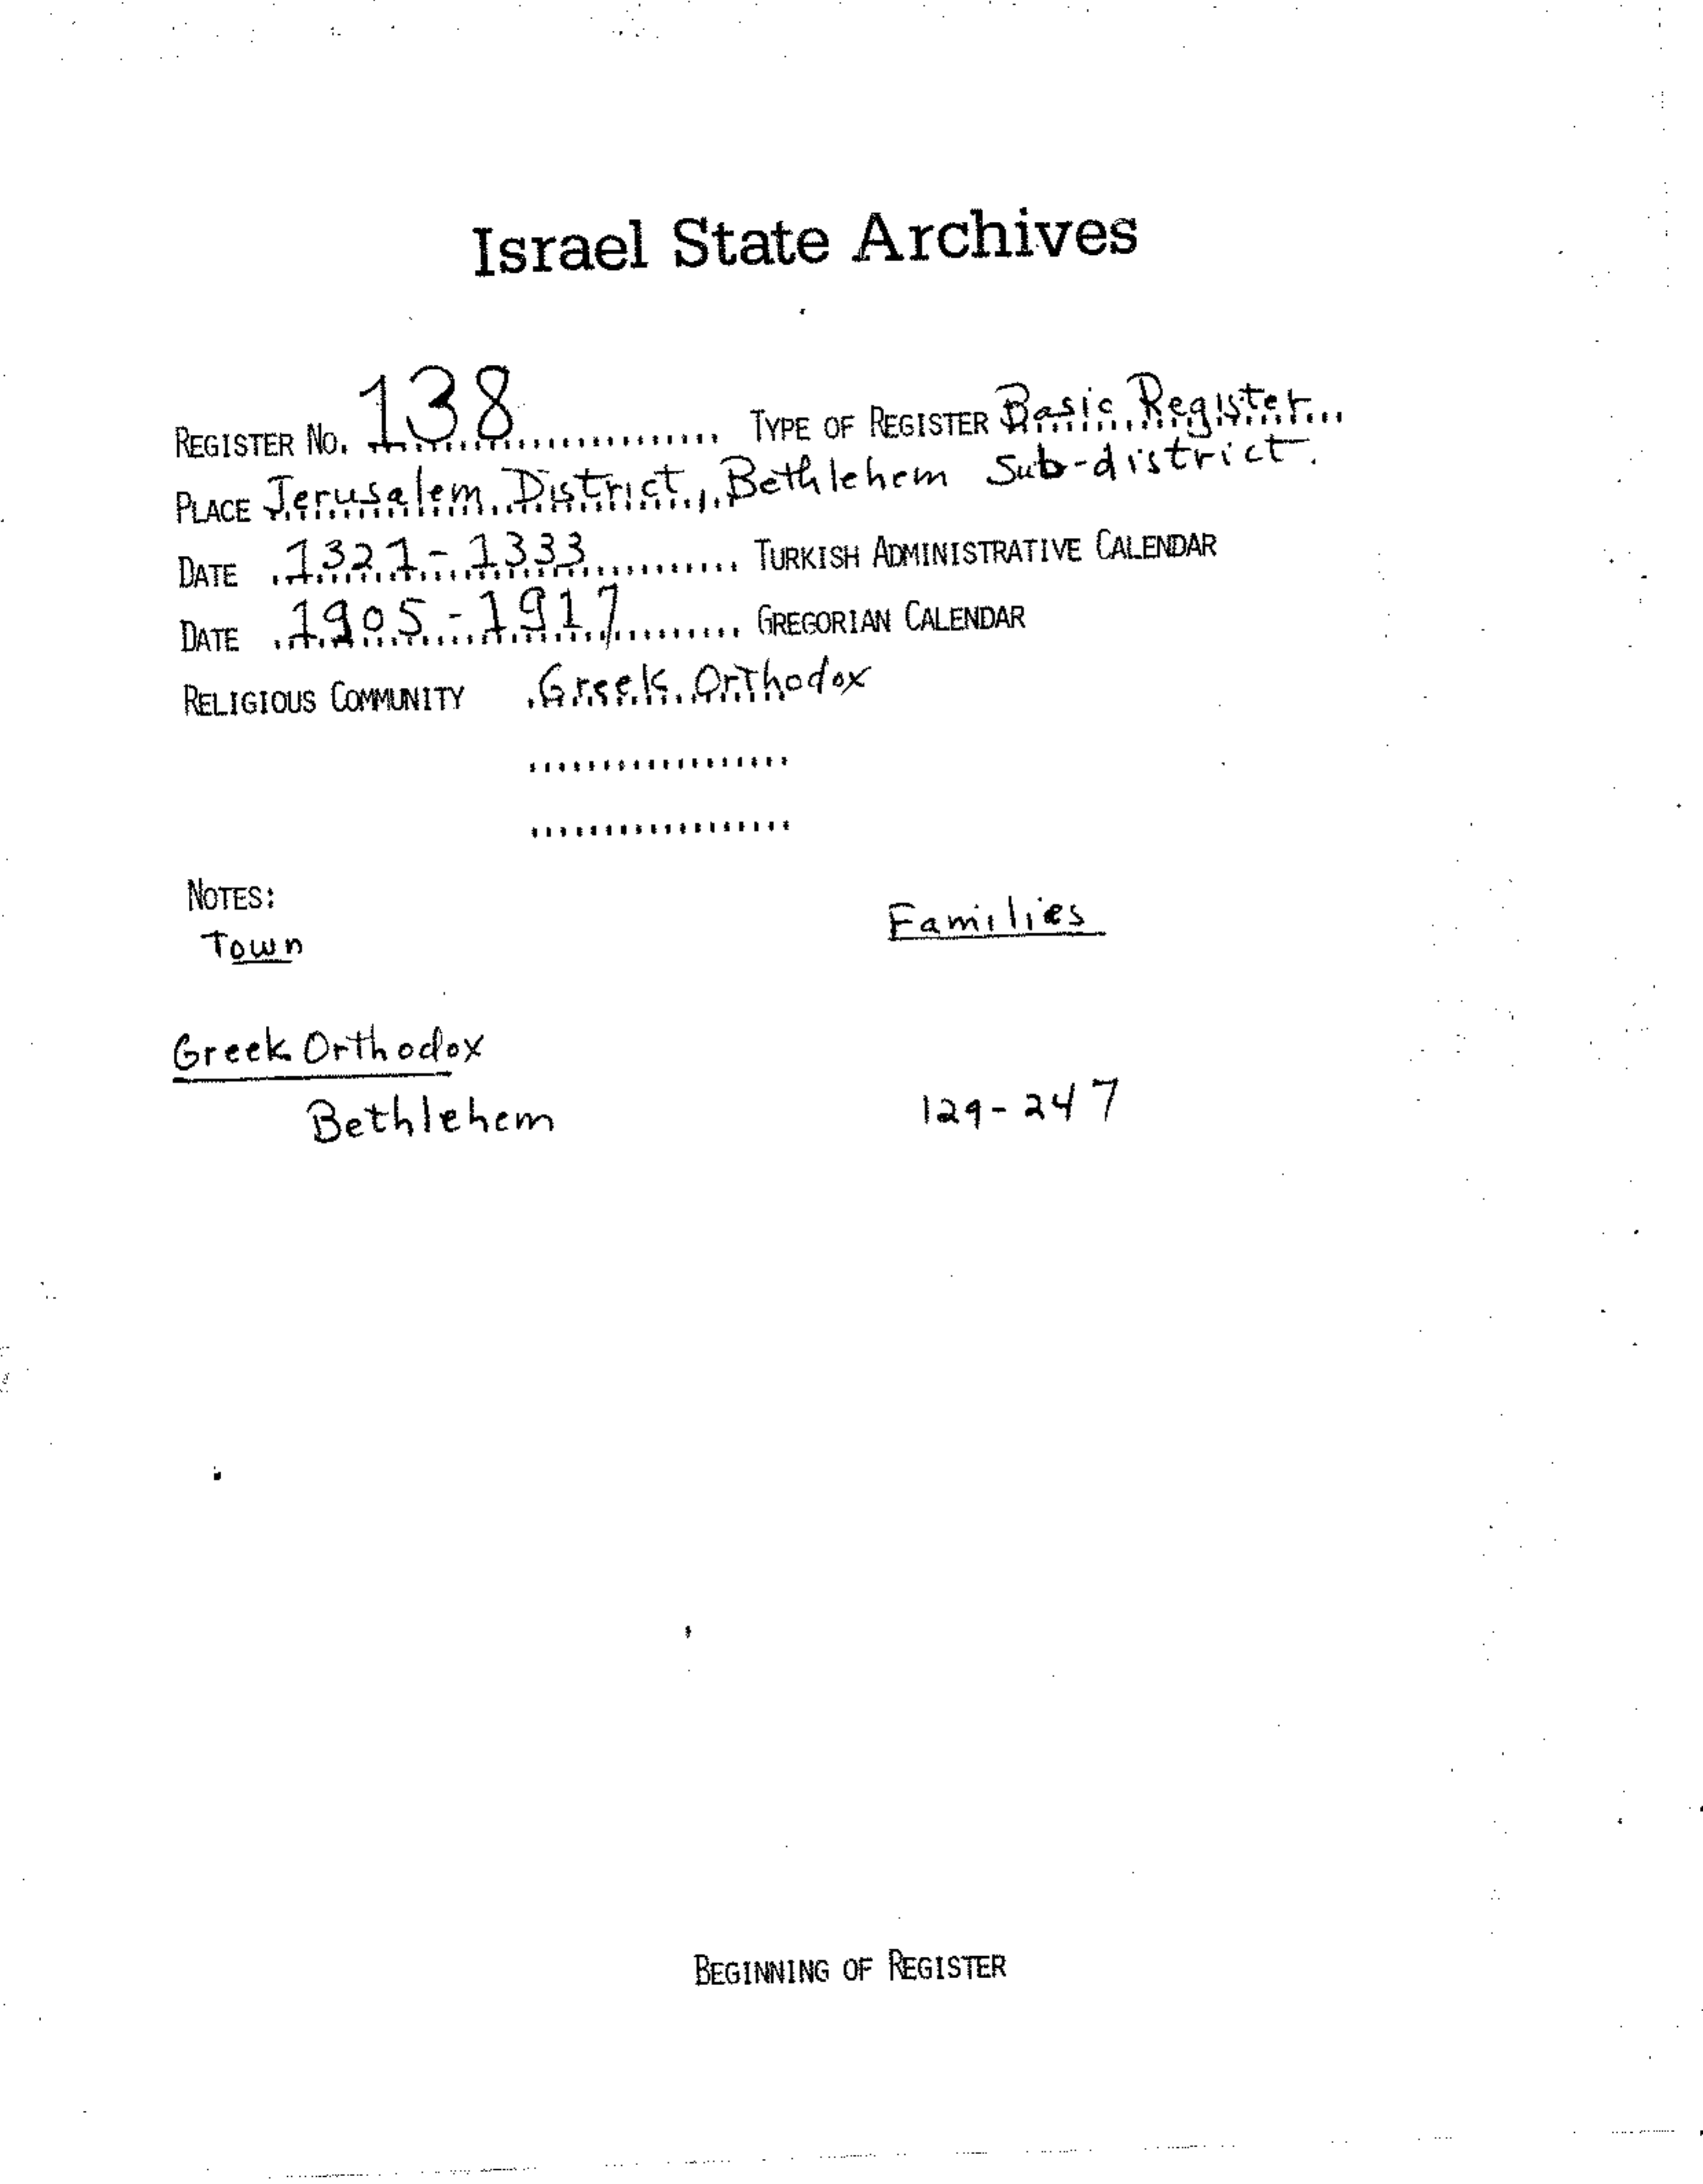 Israel State Archives
REGISTER No. 138 TYPE OF REGISTER Basic Register
PLACE Jerusalem District, Bethlehem Sub-district.
DATE 1321-1333 TURKISH ADMINISTRATIVE CALENDAR
DATE 1905-1917 GREGORIAN CALENDAR
RELIGIOUS COMMUNITY Greek Orthodox
NOTES:
Town Families
Greek Orthodox
Bethlehem 129-247
BEGINNING OF REGISTER